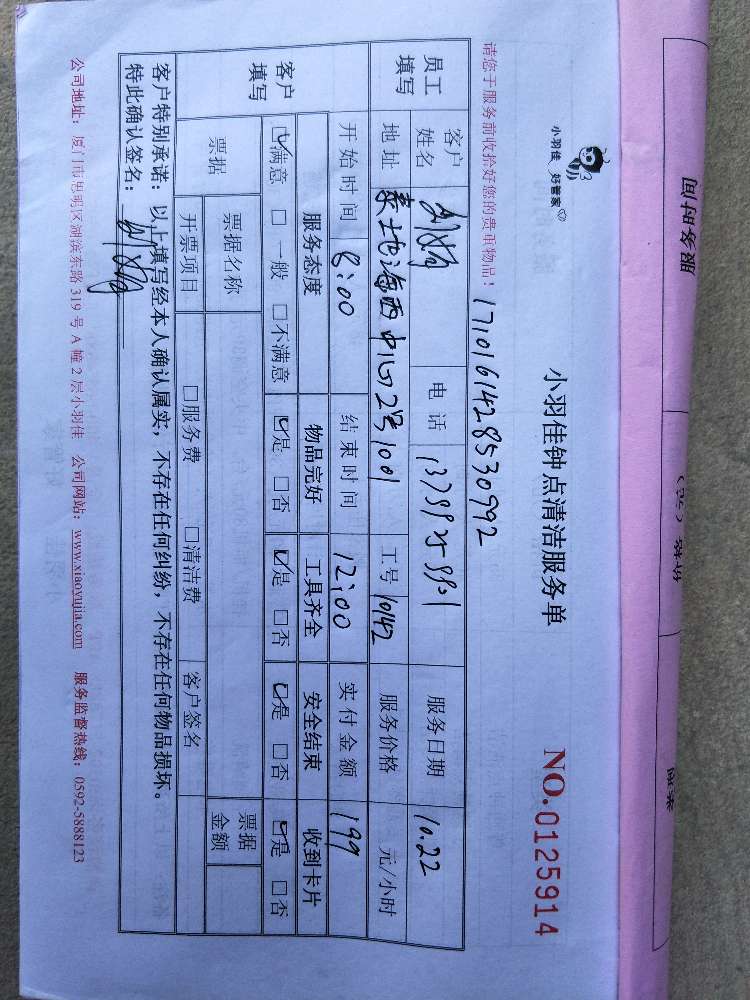 小羽佳 好管家
小羽佳钟点清洁服务单
NO.0125914
请您于服务前收拾好您的贵重物品! 1710161428530992
员工填写 客户姓名 电话 服务日期 10.22
地址 泰地海西中心2号1001 工号 10142 服务价格 元/小时
客户填写 开始时间 8:00 结束时间 12:00 实付金额 199
服务态度 物品完好 工具齐全 安全结束 收到卡片
☑满意 □一般 □不满意 ☑是 □否 ☑是 □否 ☑是 □否 ☑是 □否
票据 票据名称 票据金额
开票项目 □服务费 □清洁费 客户签名
客户特别承诺：以上填写经本人确认属实，不存在任何纠纷，不存在任何物品损坏。
特此确认签名：
公司地址：厦门市思明区湖滨东路319号A幢2层小羽佳 公司网站：www.xiaoyujia.com 服务监督热线：0592-5888123